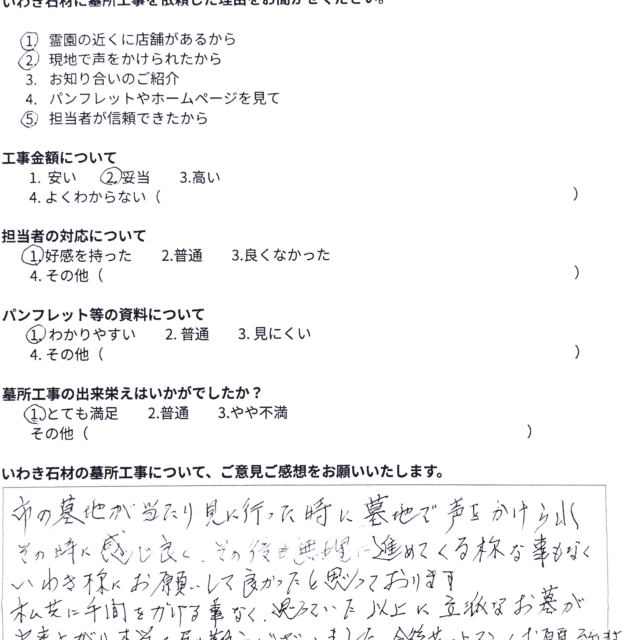 いわき石材に墓所工事を依頼した理由をお聞かせください。
1. 霊園の近くに店舗があるから
2. 現地で声をかけられたから
3. お知り合いのご紹介
4. パンフレットやホームページを見て
5. 担当者が信頼できたから
工事金額について
1. 安い 2.妥当 3.高い
4. よくわからない（ ）
担当者の対応について
1.好感を持った 2.普通 3.良くなかった
4. その他（ ）
パンフレット等の資料について
1. わかりやすい 2. 普通 3. 見にくい
4. その他（ ）
墓所工事の出来栄えはいかがでしたか？
1.とても満足 2.普通 3.やや不満
その他（ ）
いわき石材の墓所工事について、ご意見ご感想をお願いいたします。
市の墓地が当たり見に行った時に墓地で声をかけられ
その時に感じ良く、その後も無理に進めてくる様な事もなく
いわき様にお願いして良かったと思っております
私共に手間をかける事なく、思っていた以上に立派なお墓が